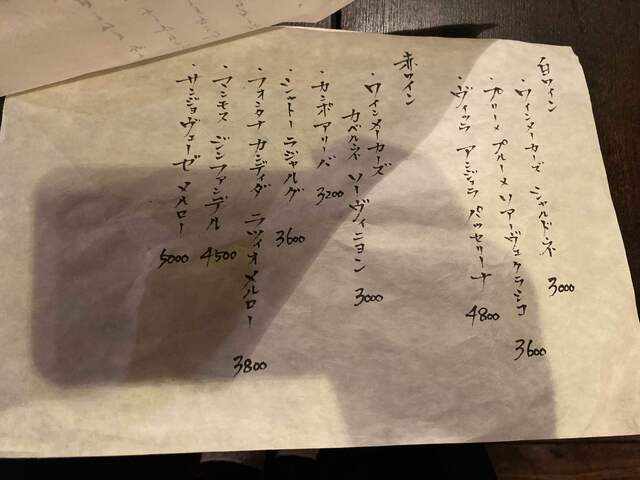 白ワイン
・ワインメーカーズ シャルドネ 3000
・プリーメ プルーメ ソアーヴェクラシコ 3600
・ヴィッラ アンジェラ パッセリーナ 4800
赤ワイン
・ワインメーカーズ
カベルネ ソーヴィニヨン 3000
・カンポアリーバ 3200
・シャトーラジャルグ 3600
・フォンタナ カンディダ ラツィオ メルロー 3800
・マンモス ジンファンデル 4500
・サンジョヴェーゼ メルロー 5000